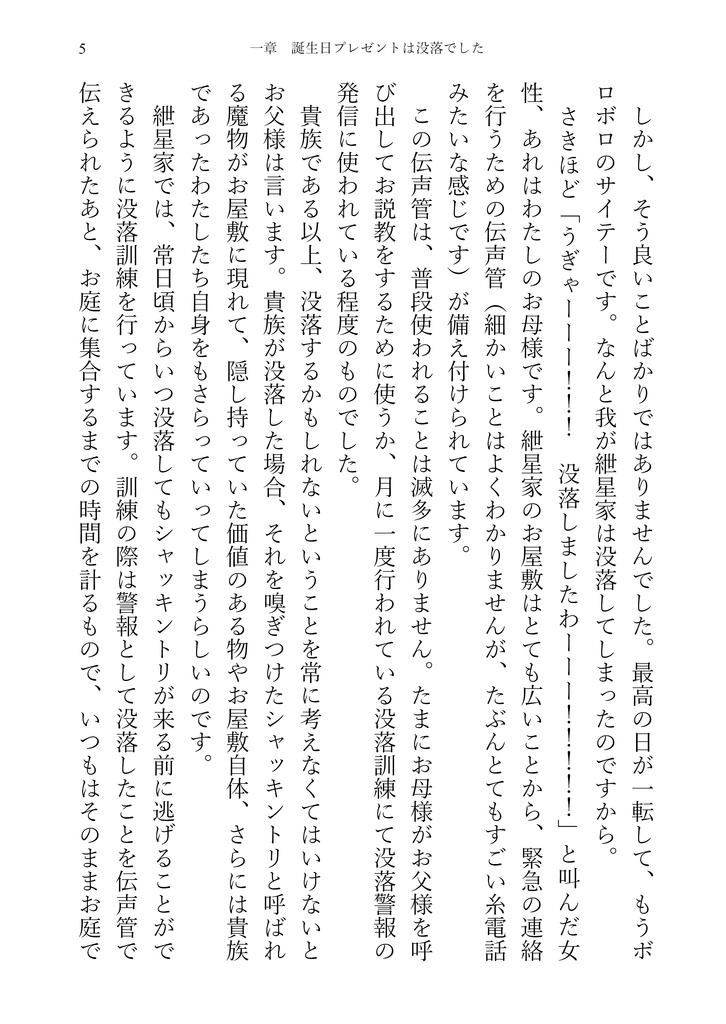 5
一章　誕生日プレゼントは没落でした
しかし、そう良いことばかりではありませんでした。最高の日が一転して、もうボ
ロボロのサイテーです。なんと我が紲星家は没落してしまったのですから。
さきほど「うぎゃーーー！！！　没落しましたわーーー！！！！」と叫んだ女
性、あれはわたしのお母様です。紲星家のお屋敷はとても広いことから、緊急の連絡
を行うための伝声管（細かいことはよくわかりませんが、たぶんとてもすごい糸電話
みたいな感じです）が備え付けられています。
この伝声管は、普段使われることは滅多にありません。たまにお母様がお父様を呼
び出してお説教をするために使うか、月に一度行われている没落訓練にて没落警報の
発信に使われている程度のものでした。
貴族である以上、没落するかもしれないということを常に考えなくてはいけないと
お父様は言います。貴族が没落した場合、それを嗅ぎつけたシャッキントリと呼ばれ
る魔物がお屋敷に現れて、隠し持っていた価値のある物やお屋敷自体、さらには貴族
であったわたしたち自身をもさらっていってしまうらしいのです。
紲星家では、常日頃からいつ没落してもシャッキントリが来る前に逃げることがで
きるように没落訓練を行っています。訓練の際は警報として没落したことを伝声管で
伝えられたあと、お庭に集合するまでの時間を計るもので、いつもはそのままお庭で